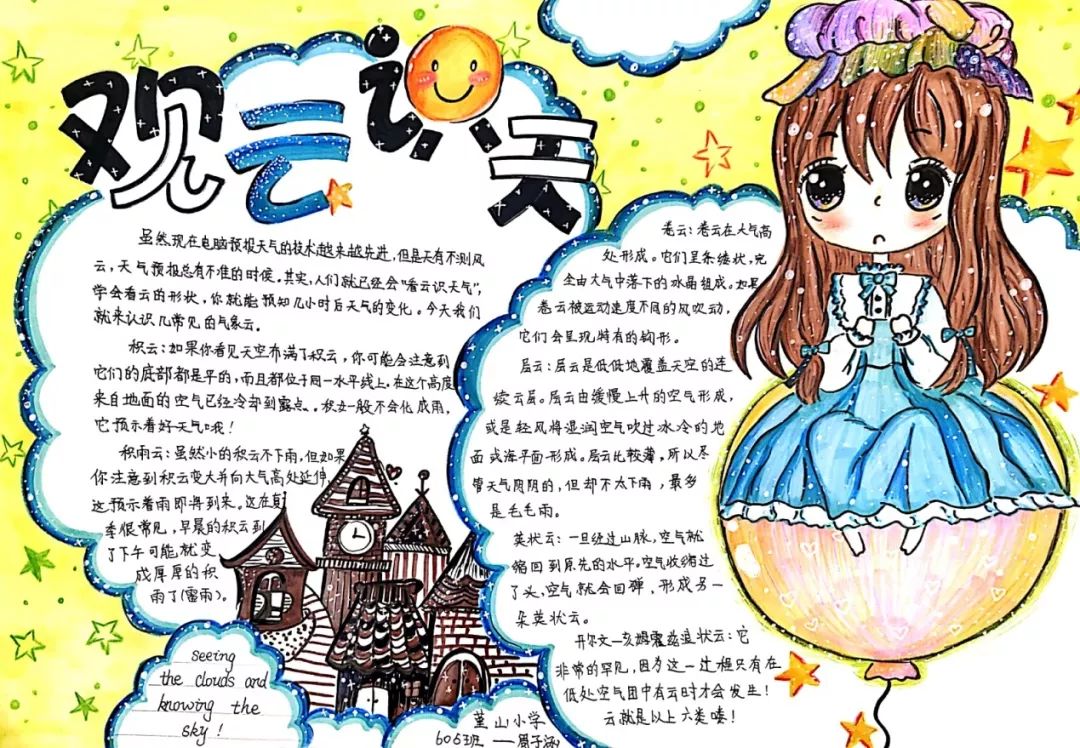 观云识天
虽然现在电脑预报天气的技术越来越先进,但是天有不测风
云,天气预报总有不准的时候。其实,人们就已经会“看云识天气”,
学会看云的形状,你就能预知几小时后天气的变化。今天我们
就来认识几常见的气象云。
积云:如果你看见天空布满了积云,你可能会注意到
它们的底部都是平的,而且都位于同一水平线上。在这个高度
来自地面的空气已经冷却到露点。积云一般不会化成雨,
它预示着好天气哦!
积雨云:虽然小的积云不下雨,但如果
你注意到积云变大并向大气高处延伸,
这预示着雨即将到来。这在夏
季很常见,早晨的积云到
了下午可能就变
成厚厚的积
雨了(雷雨)。
seeing
the clouds and
knowing the
sky!
卷云:卷云在大气高
处形成。它们呈条缕状,完
全由大气中落下的冰晶组成。如果
卷云被运动速度不同的风吹动,
它们会呈现特有的钩形。
层云:层云是低低地覆盖天空的连
续云层。层云由缓慢上升的空气形成,
或是轻风将湿润空气吹过冰冷的地
面或海平面形成。层云比较薄,所以尽
管天气阴阴的,但却不太下雨,最多
是毛毛雨。
荚状云:一旦经过山脉,空气就
缩回到原先的水平。空气收缩过
了头,空气就会回弹,形成另一
朵荚状云。
开尔文—亥姆霍兹波状云:它
非常的罕见,因为这一过程只有在
低处空气团中有云时才会发生!
云就是以上六类喽!
堇山小学
605班——周子涵